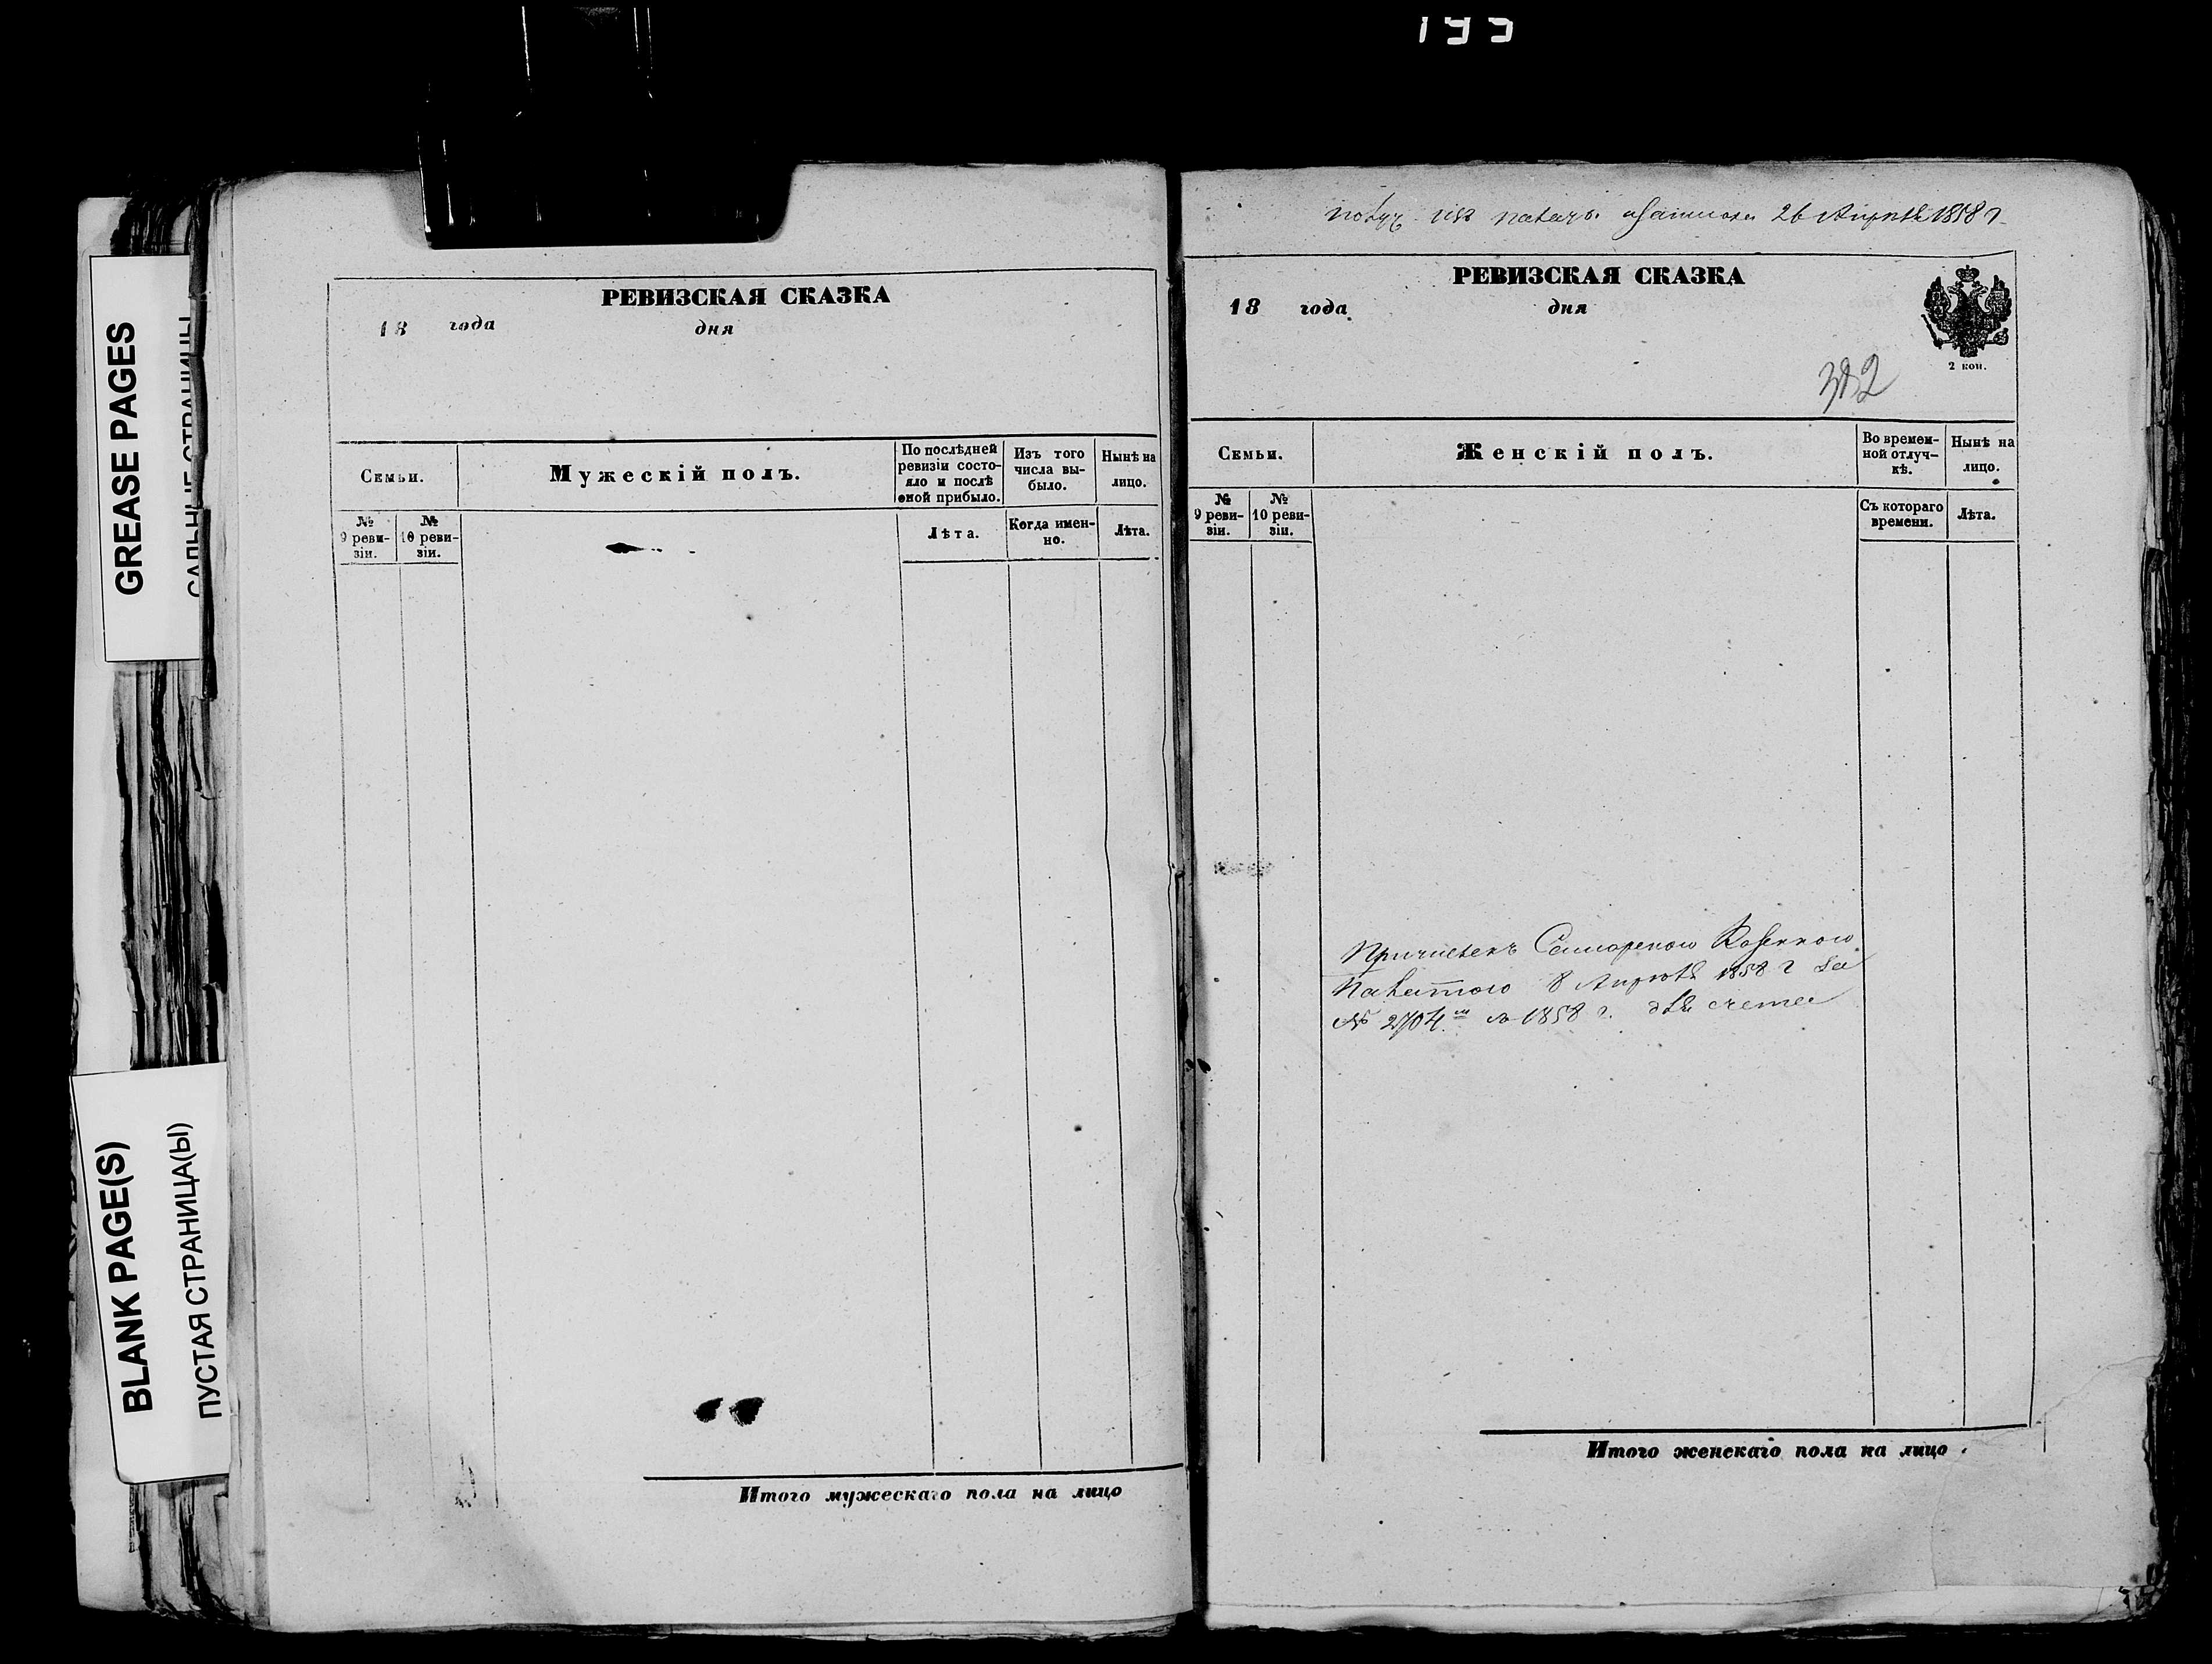 195
GREASE PAGES
САЛЬНЫЕ СТРАНИЦЫ
BLANK PAGE(S)
ПУСТАЯ СТРАНИЦА(Ы)
РЕВИЗСКАЯ СКАЗКА
18 года дня
Семьи.
Мужескій полъ.
По послѣдней ревизіи состояло и послѣ оной прибыло.
Изъ того числа выбыло.
Нынѣ на лицо.
№ 9 ревизіи.
№ 10 ревизіи.
Лѣта.
Когда именно.
Лѣта.
Итого мужескаго пола на лицо
получ. изъ палаты 26 Апрѣля 1858 г.
РЕВИЗСКАЯ СКАЗКА
18 года дня
2 коп.
382
Семьи.
Женскій полъ.
Во временной отлучкѣ.
Нынѣ на лицо.
№ 9 ревизіи.
№ 10 ревизіи.
Съ котораго времени.
Лѣта.
Причисленъ Самарскою Казенною
Палатою 8 Апрѣля 1858 г за
№ 2704.м съ 1858 г. для счета
Итого женскаго пола на лицо.